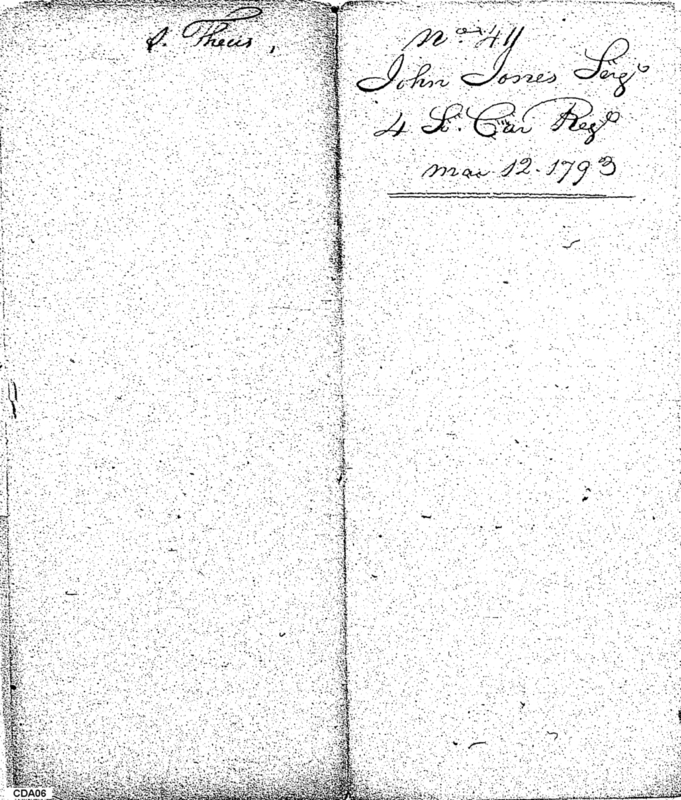 S. Theus,
No. 44
John Jones Sergt
4 So. Car Regt
mar 12. 1793
CDA06